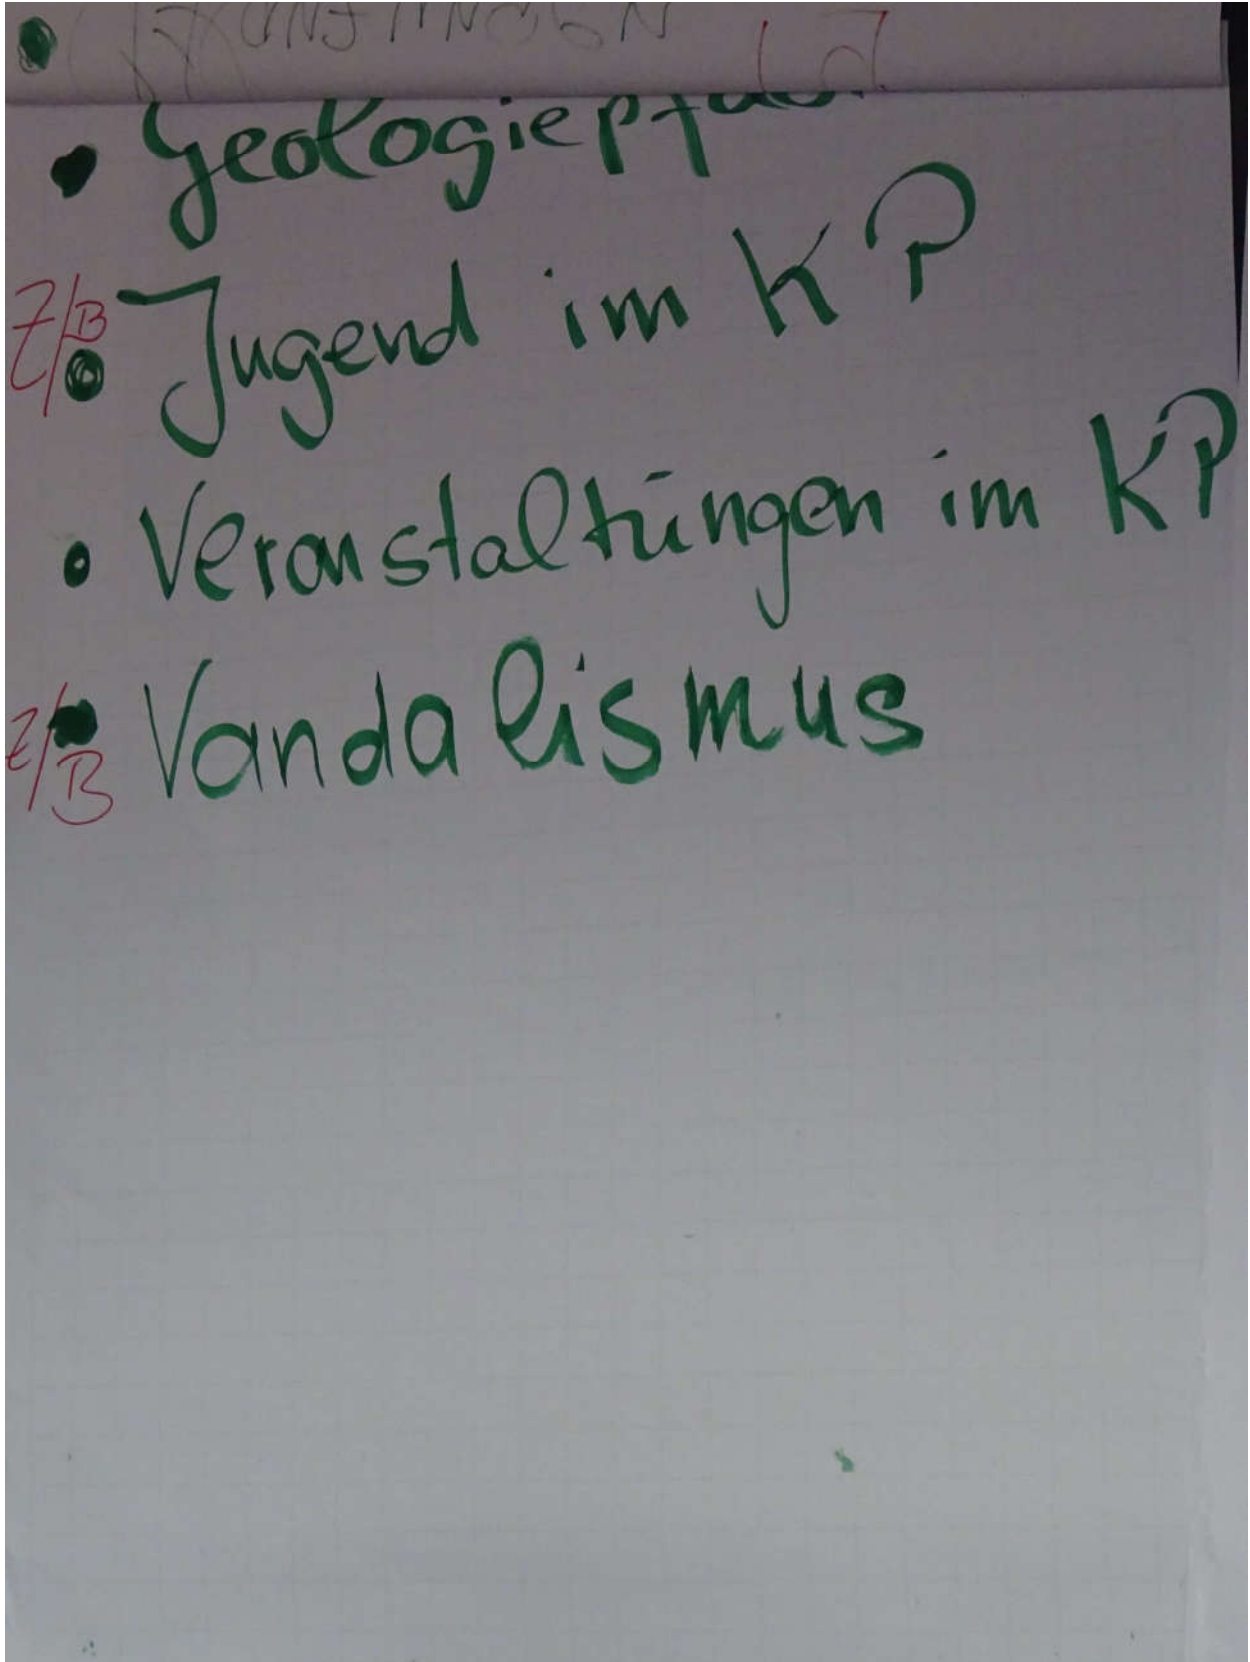 • Geologiepfad
Z/B • Jugend im KP
• Veranstaltungen im KP
Z/B • Vandalismus